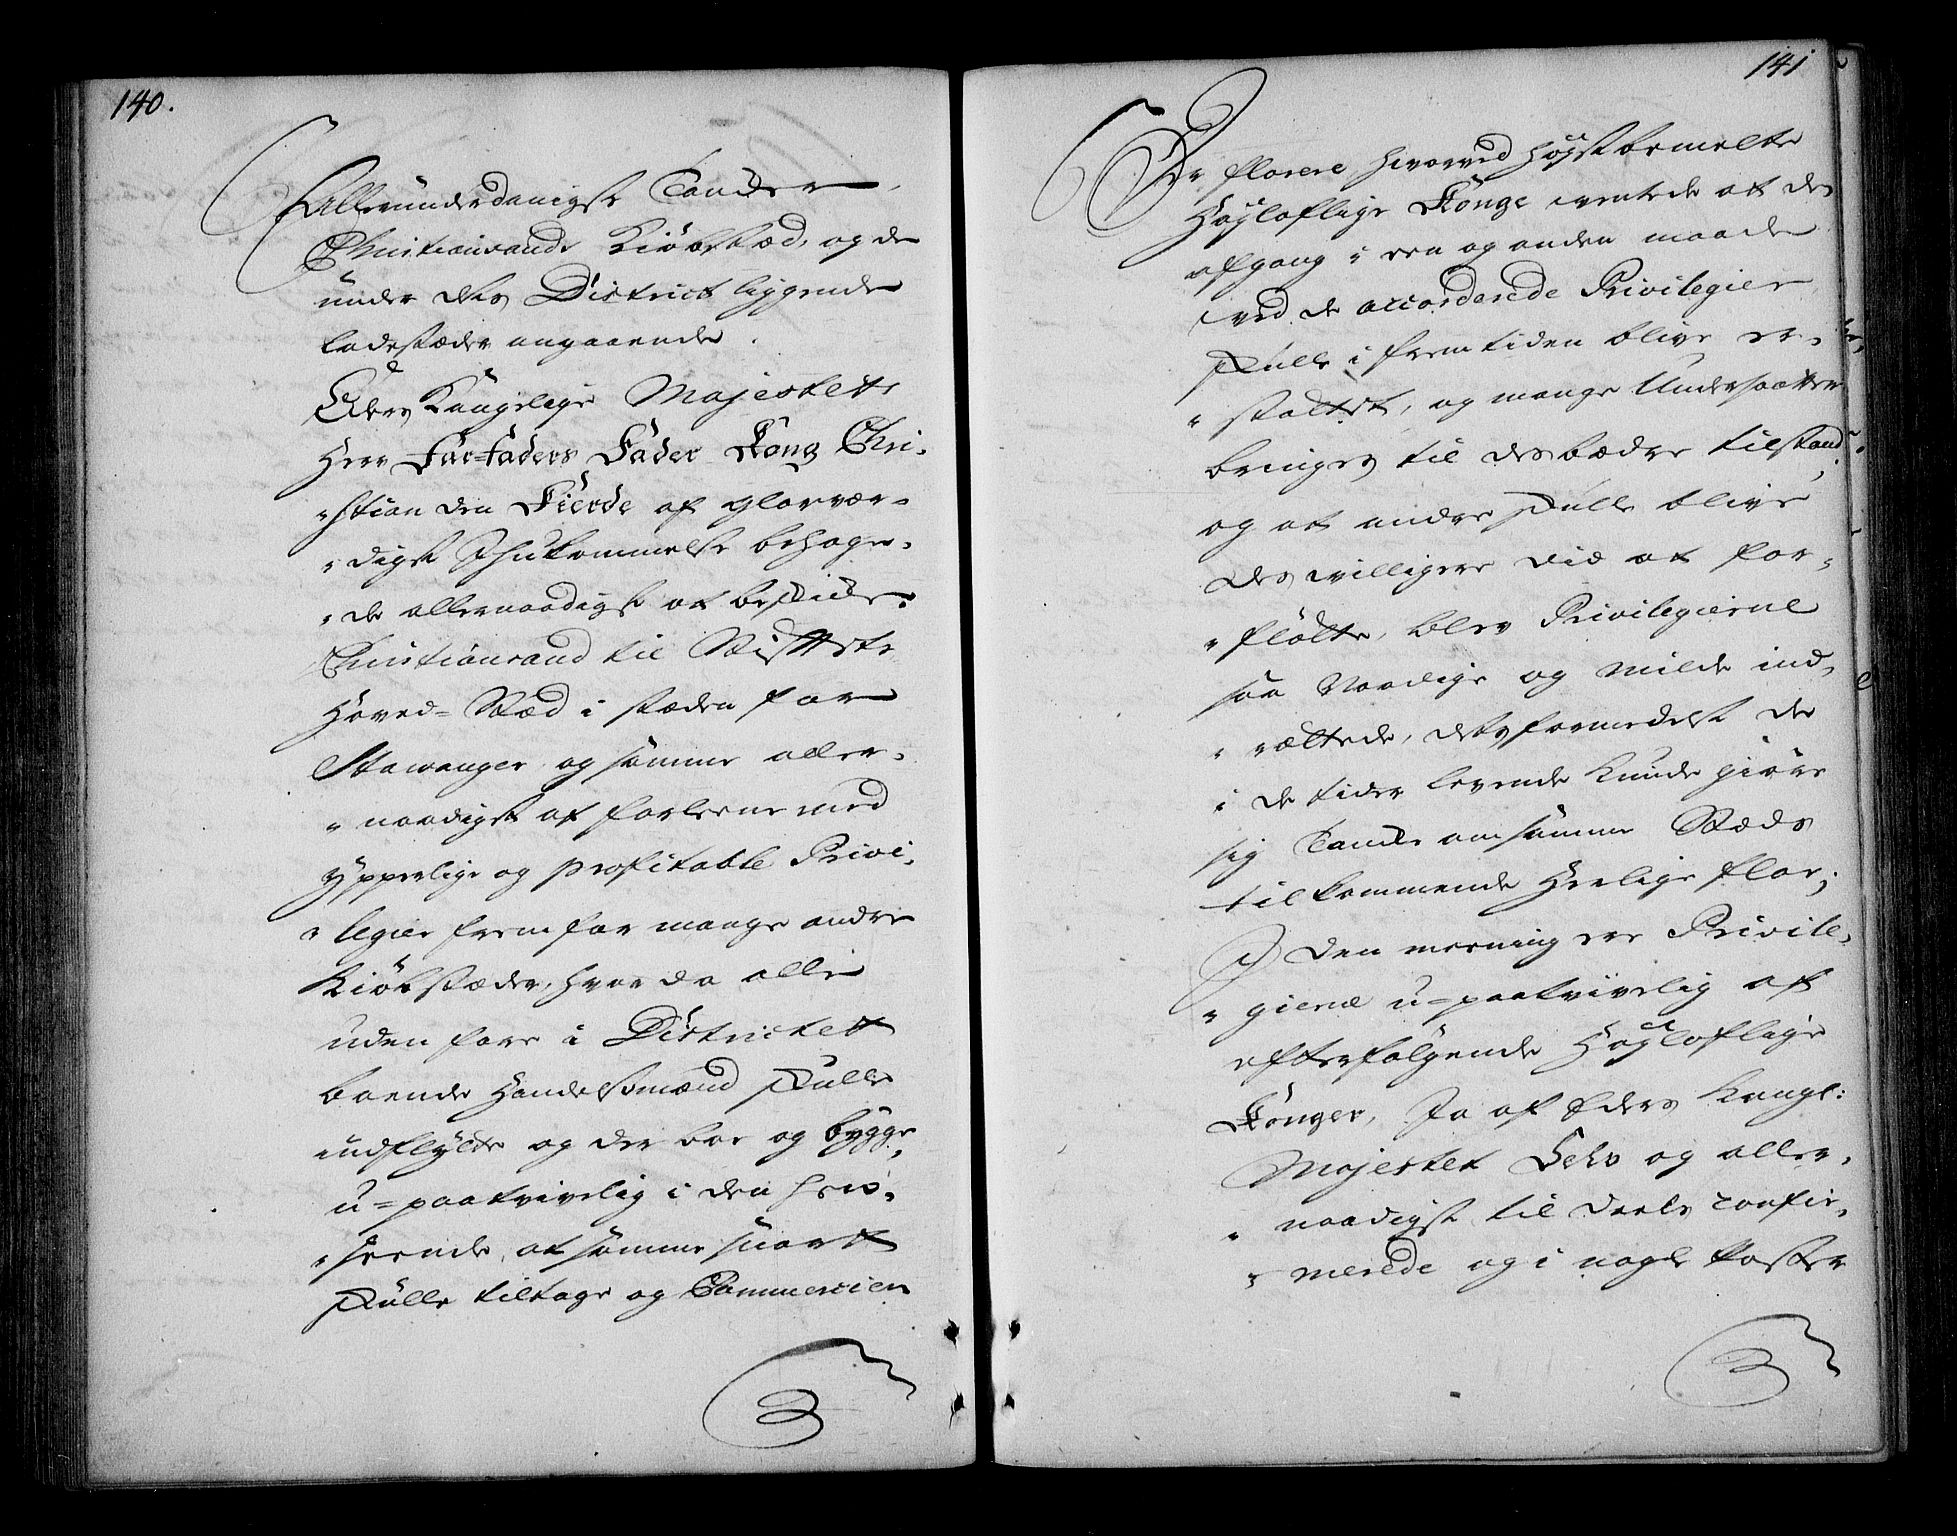 140.
Allerunderdanigst Tancker,
Christiansands Kiöbstæd, og de
under dets District liggende
Ladestæder angaaende.
Eders Kongelige Majestetts
Herr Far-Faders Fader Kong Chri-
stian den Fierde af glorvær-
digst Ihukommelse behage-
de allernaadigst at beskicke
Christiansand til Stifftets
Hoved-Stæd i stæden for
Stawanger og samme aller-
naadigst at forleene med
ypperlige og profitable Privi-
legier frem for mange andre
Kiöbstæder, hvor da alle
uden fore i Districtett
boende Handelsmænd skulle
indflytte og der boe og bygge
u-paatvivelig i den hen-
seende, at samme snart
skulle tiltage og Commercien
141
Der florere, hvorved høystbemelte
Høyloflige Konge ventede at des
afgang i een og anden maade
ved de accorderede Privilegier
skulle i fremtiden blive er-
stattet, og mange Undersaatter
bringes til des bædre tilstand,
og at andre skulle blive
des villigere vid at for-
flötte, blev Privilegierne
saa Naadige og milde ind-
rættede, dets formedelst de
i de tider levende kunde giöre
sig Tancke om samme Stæds
tilkommende Herlige flor;
I den meening ere Privile-
gierne u-paatvivelig af
efterfølgende Høyloflige
Konger, Ja af Eders Kongl:
Majestet Selv og aller-
naadigst til deels confir-
merede og i nogle Poster